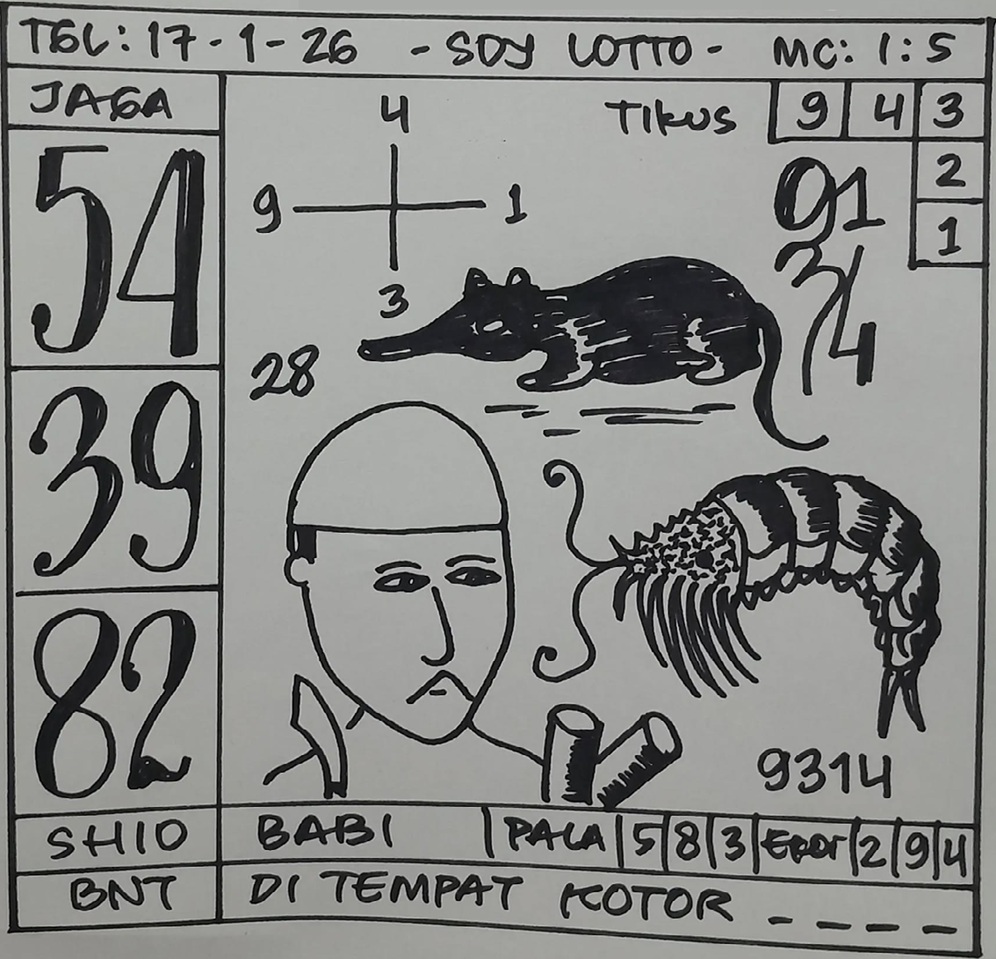 TGL: 17-1-26 - SDY LOTTO - MC: 1:5
JAGA
54
39
82
4
9 1
3
28
TIKUS
9 4 3
2
1
01
34
9314
SHIO BABI PALA 5 8 3 EKOR 2 9 4
BNT DI TEMPAT KOTOR _ _ _ _